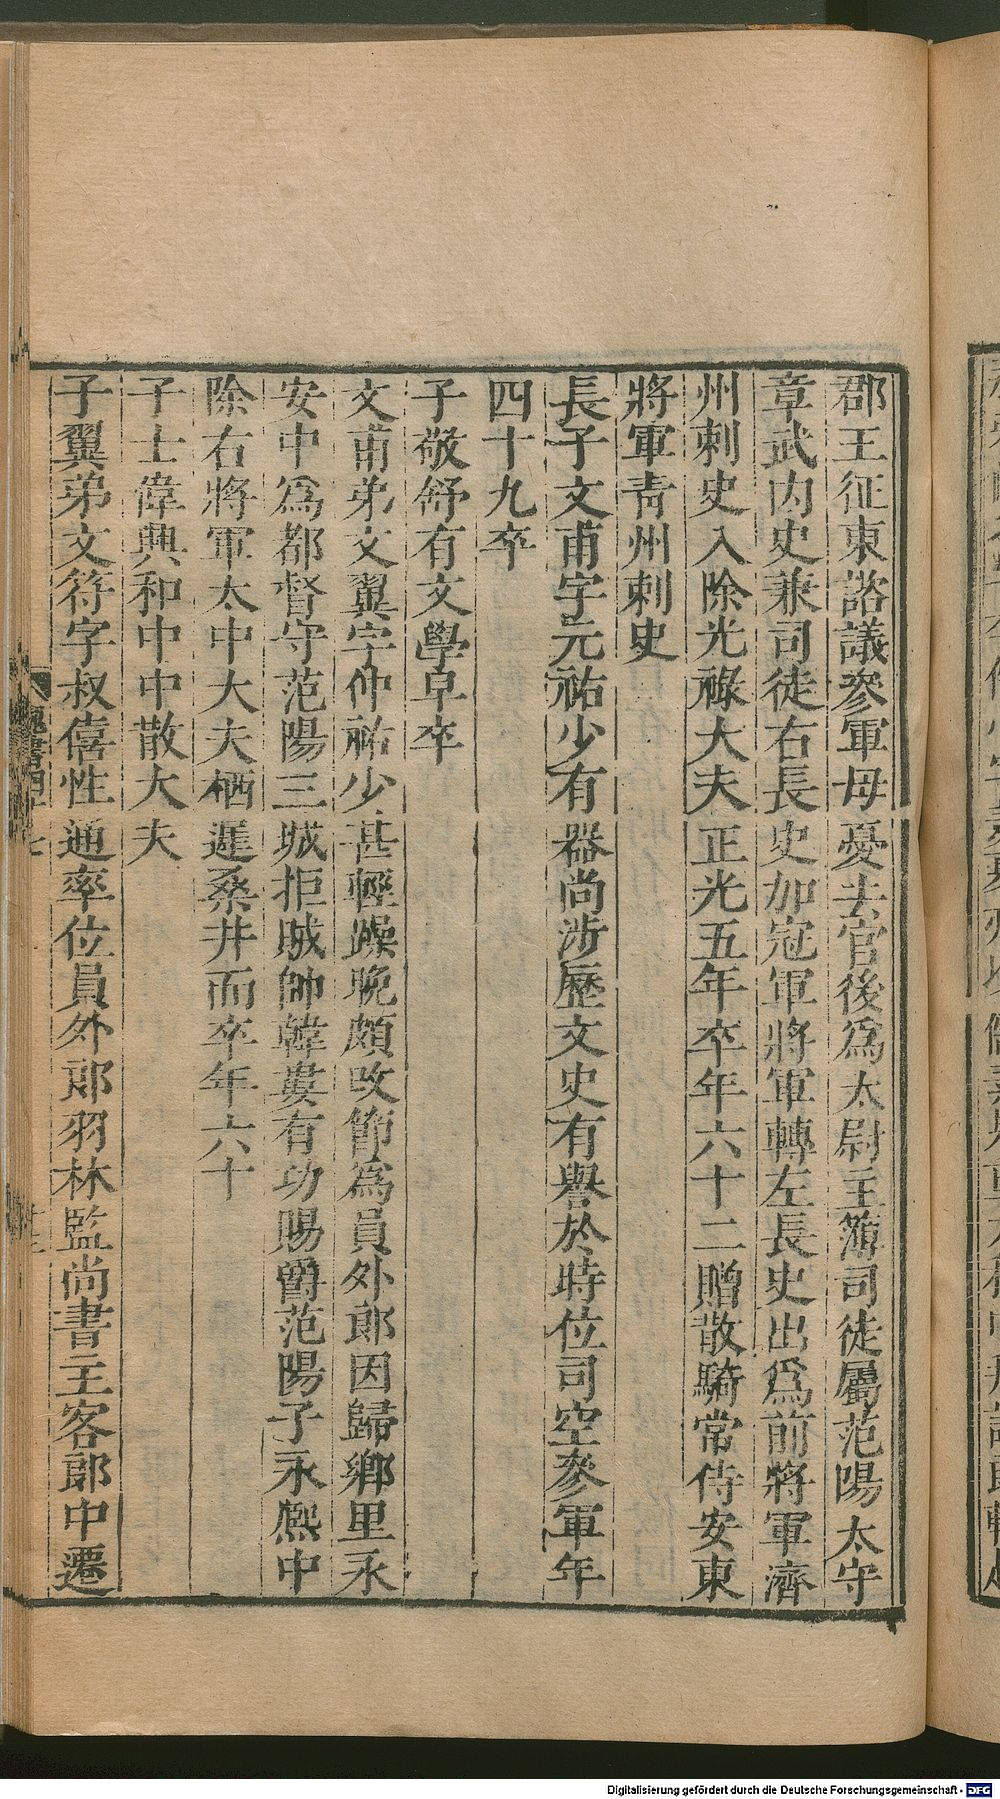 郡王征東諮議參軍母憂去官後爲太尉主簿司徒屬范陽太守
章武内史兼司徒右長史加冠軍將軍轉左長史出爲前將軍濟
州刺史入除光祿大夫正光五年卒年六十二贈散騎常侍安東
將軍青州刺史
長子文甫字元祐少有器尚涉歷文史有譽於時位司空參軍年
四十九卒
子敬舒有文學早卒
文甫弟文翼字仲祐少甚輕躁晩頗改節爲員外郎因歸鄉里永
安中爲都督守范陽三城拒賊帥韓婁有功賜爵范陽子永熙中
除右將軍太中大夫栖遲桑井而卒年六十
子士偉興和中中散大夫
子翼弟文符字叔僖性通率位員外郎羽林監尚書主客郎中遷
Digitalisierung gefördert durch die Deutsche Forschungsgemeinschaft - DFG